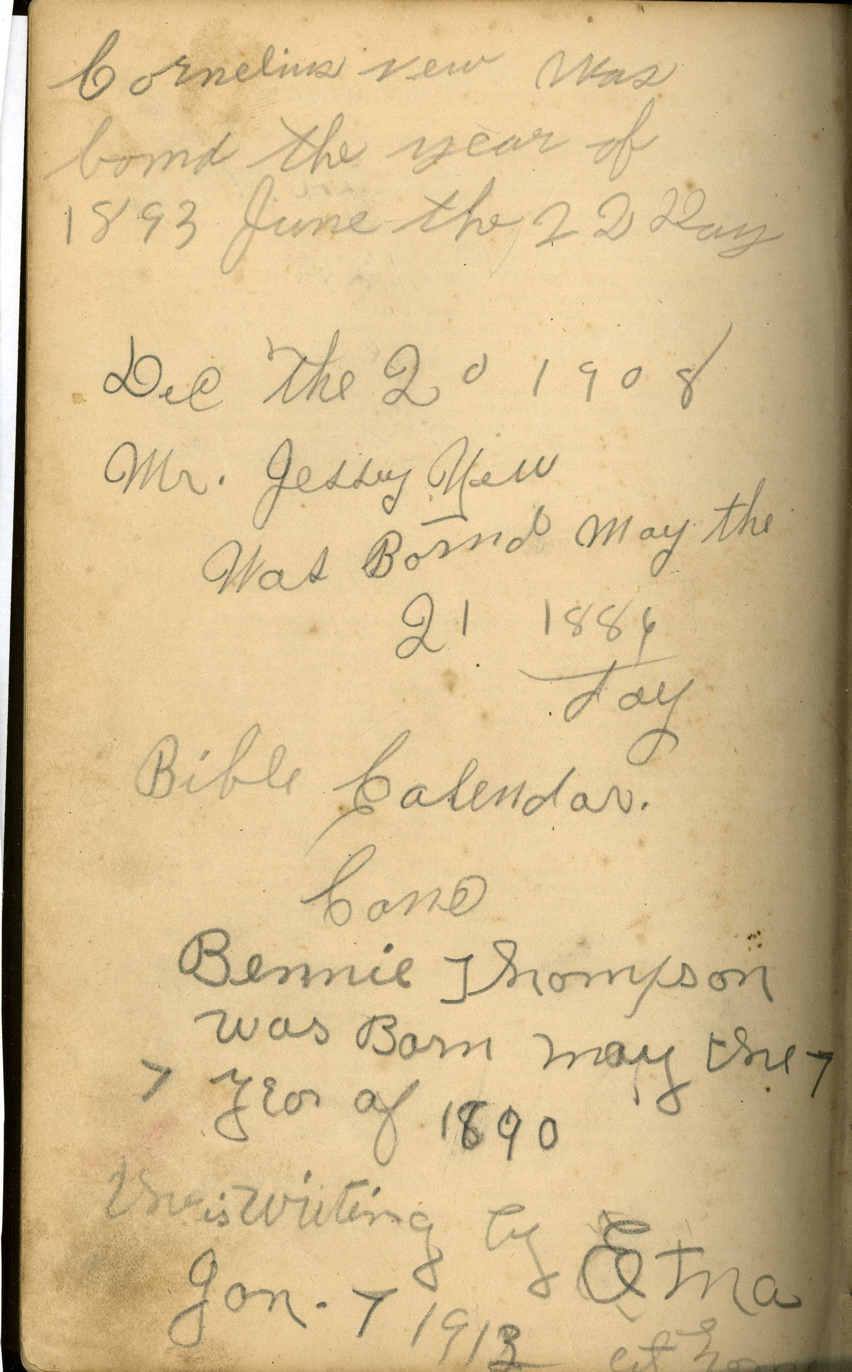 Cornelius new was
bornd the year of
1893 June the 22 Day
Dec The 20 1908
Mr. Jessey New
Was Bornd May the
21 1886
day
Bible Calendar.
Cono
Bennie Thompson
was Born may the 7
7 year of 1890
this is Writing by Etna
Jan. 7 1913